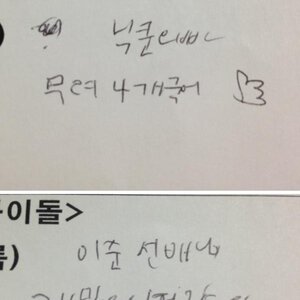 닉쿤오빠
무려 4개국어
이돌>
이준 선배님